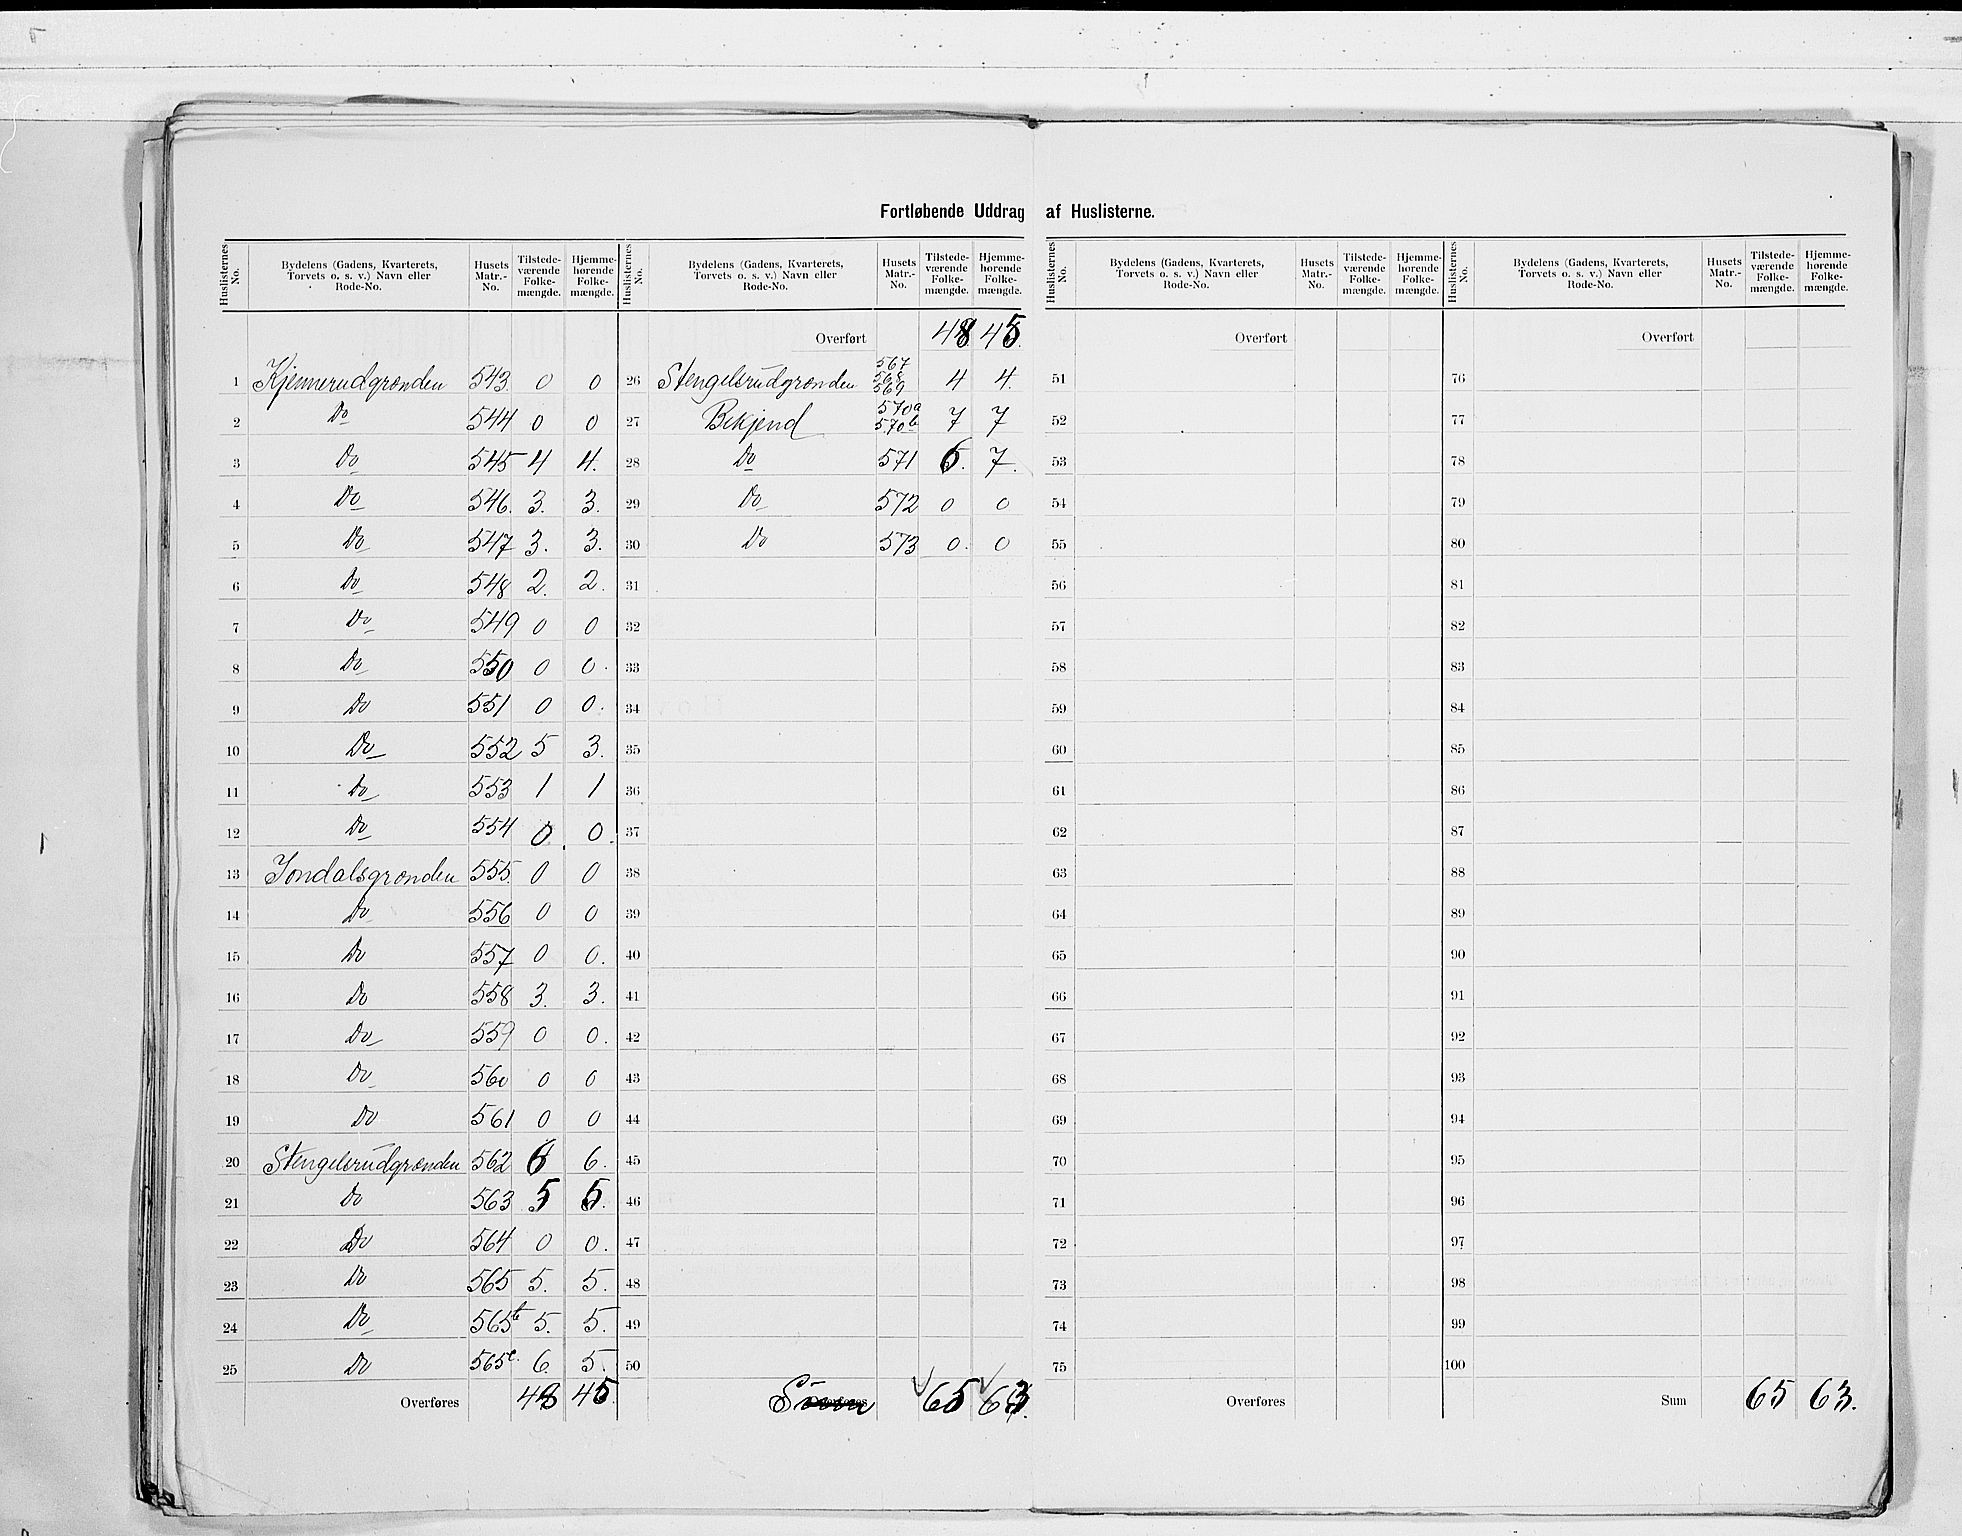 Fortløbende Uddrag af Huslisterne.
Huslisternes No. | Bydelens (Gadens, Kvarterets, Torvets o. s. v.) Navn eller Rode-No. | Husets Matr.-No. | Tilstede-værende Folke-mængde. | Hjemme-hørende Folke-mængde. | Huslisternes No. | Bydelens (Gadens, Kvarterets, Torvets o. s. v.) Navn eller Rode-No. | Husets Matr.-No. | Tilstede-værende Folke-mængde. | Hjemme-hørende Folke-mængde. | Huslisternes No. | Bydelens (Gadens, Kvarterets, Torvets o. s. v.) Navn eller Rode-No. | Husets Matr.-No. | Tilstede-værende Folke-mængde. | Hjemme-hørende Folke-mængde. | Huslisternes No. | Bydelens (Gadens, Kvarterets, Torvets o. s. v.) Navn eller Rode-No. | Husets Matr.-No. | Tilstede-værende Folke-mængde. | Hjemme-hørende Folke-mængde.
Overført 48 45. Overført Overført
1 Kjennerudgrænden 543 0 0 26 Stengelsrudgrænden 567 568 569 4 4. 51 76
2 Do 544 0 0 27 Bekjend 570a 570b 7 7 52 77
3 Do 545 4 4. 28 Do 571 6. 7. 53 78
4 Do 546. 3. 3. 29 Do 572 0 0 54 79
5 Do 547 3. 3. 30 Do 573 0. 0 55 80
6 Do 548 2. 2. 31 56 81
7 Do 549 0 0 32 57 82
8 Do 550 0 0. 33 58 83
9 Do 551 0 0. 34 59 84
10 Do 552 5 3. 35 60 85
11 Do 553 1 1 36 61 86
12 Do 554 0 0. 37 62 87
13 Jondalsgrænden 555 0 0 38 63 88
14 Do 556 0 0 39 64 89
15 Do 557 0 0. 40 65 90
16 Do 558 3. 3. 41 66 91
17 Do 559 0 0. 42 67 92
18 Do 560 0 0 43 68 93
19 Do 561 0 0 44 69 94
20 Stengelsrudgrænden 562 6 6. 45 70 95
21 Do 563 5 5. 46 71 96
22 Do 564 0 0. 47 72 97
23 Do 565 5. 5. 48 73 98
24 Do 565b 5. 5. 49 74 99
25 Do 565c. 6 5. 50 75 100
Overføres 48 45. Overføres Sum 65 63. Overføres Sum 65 63.